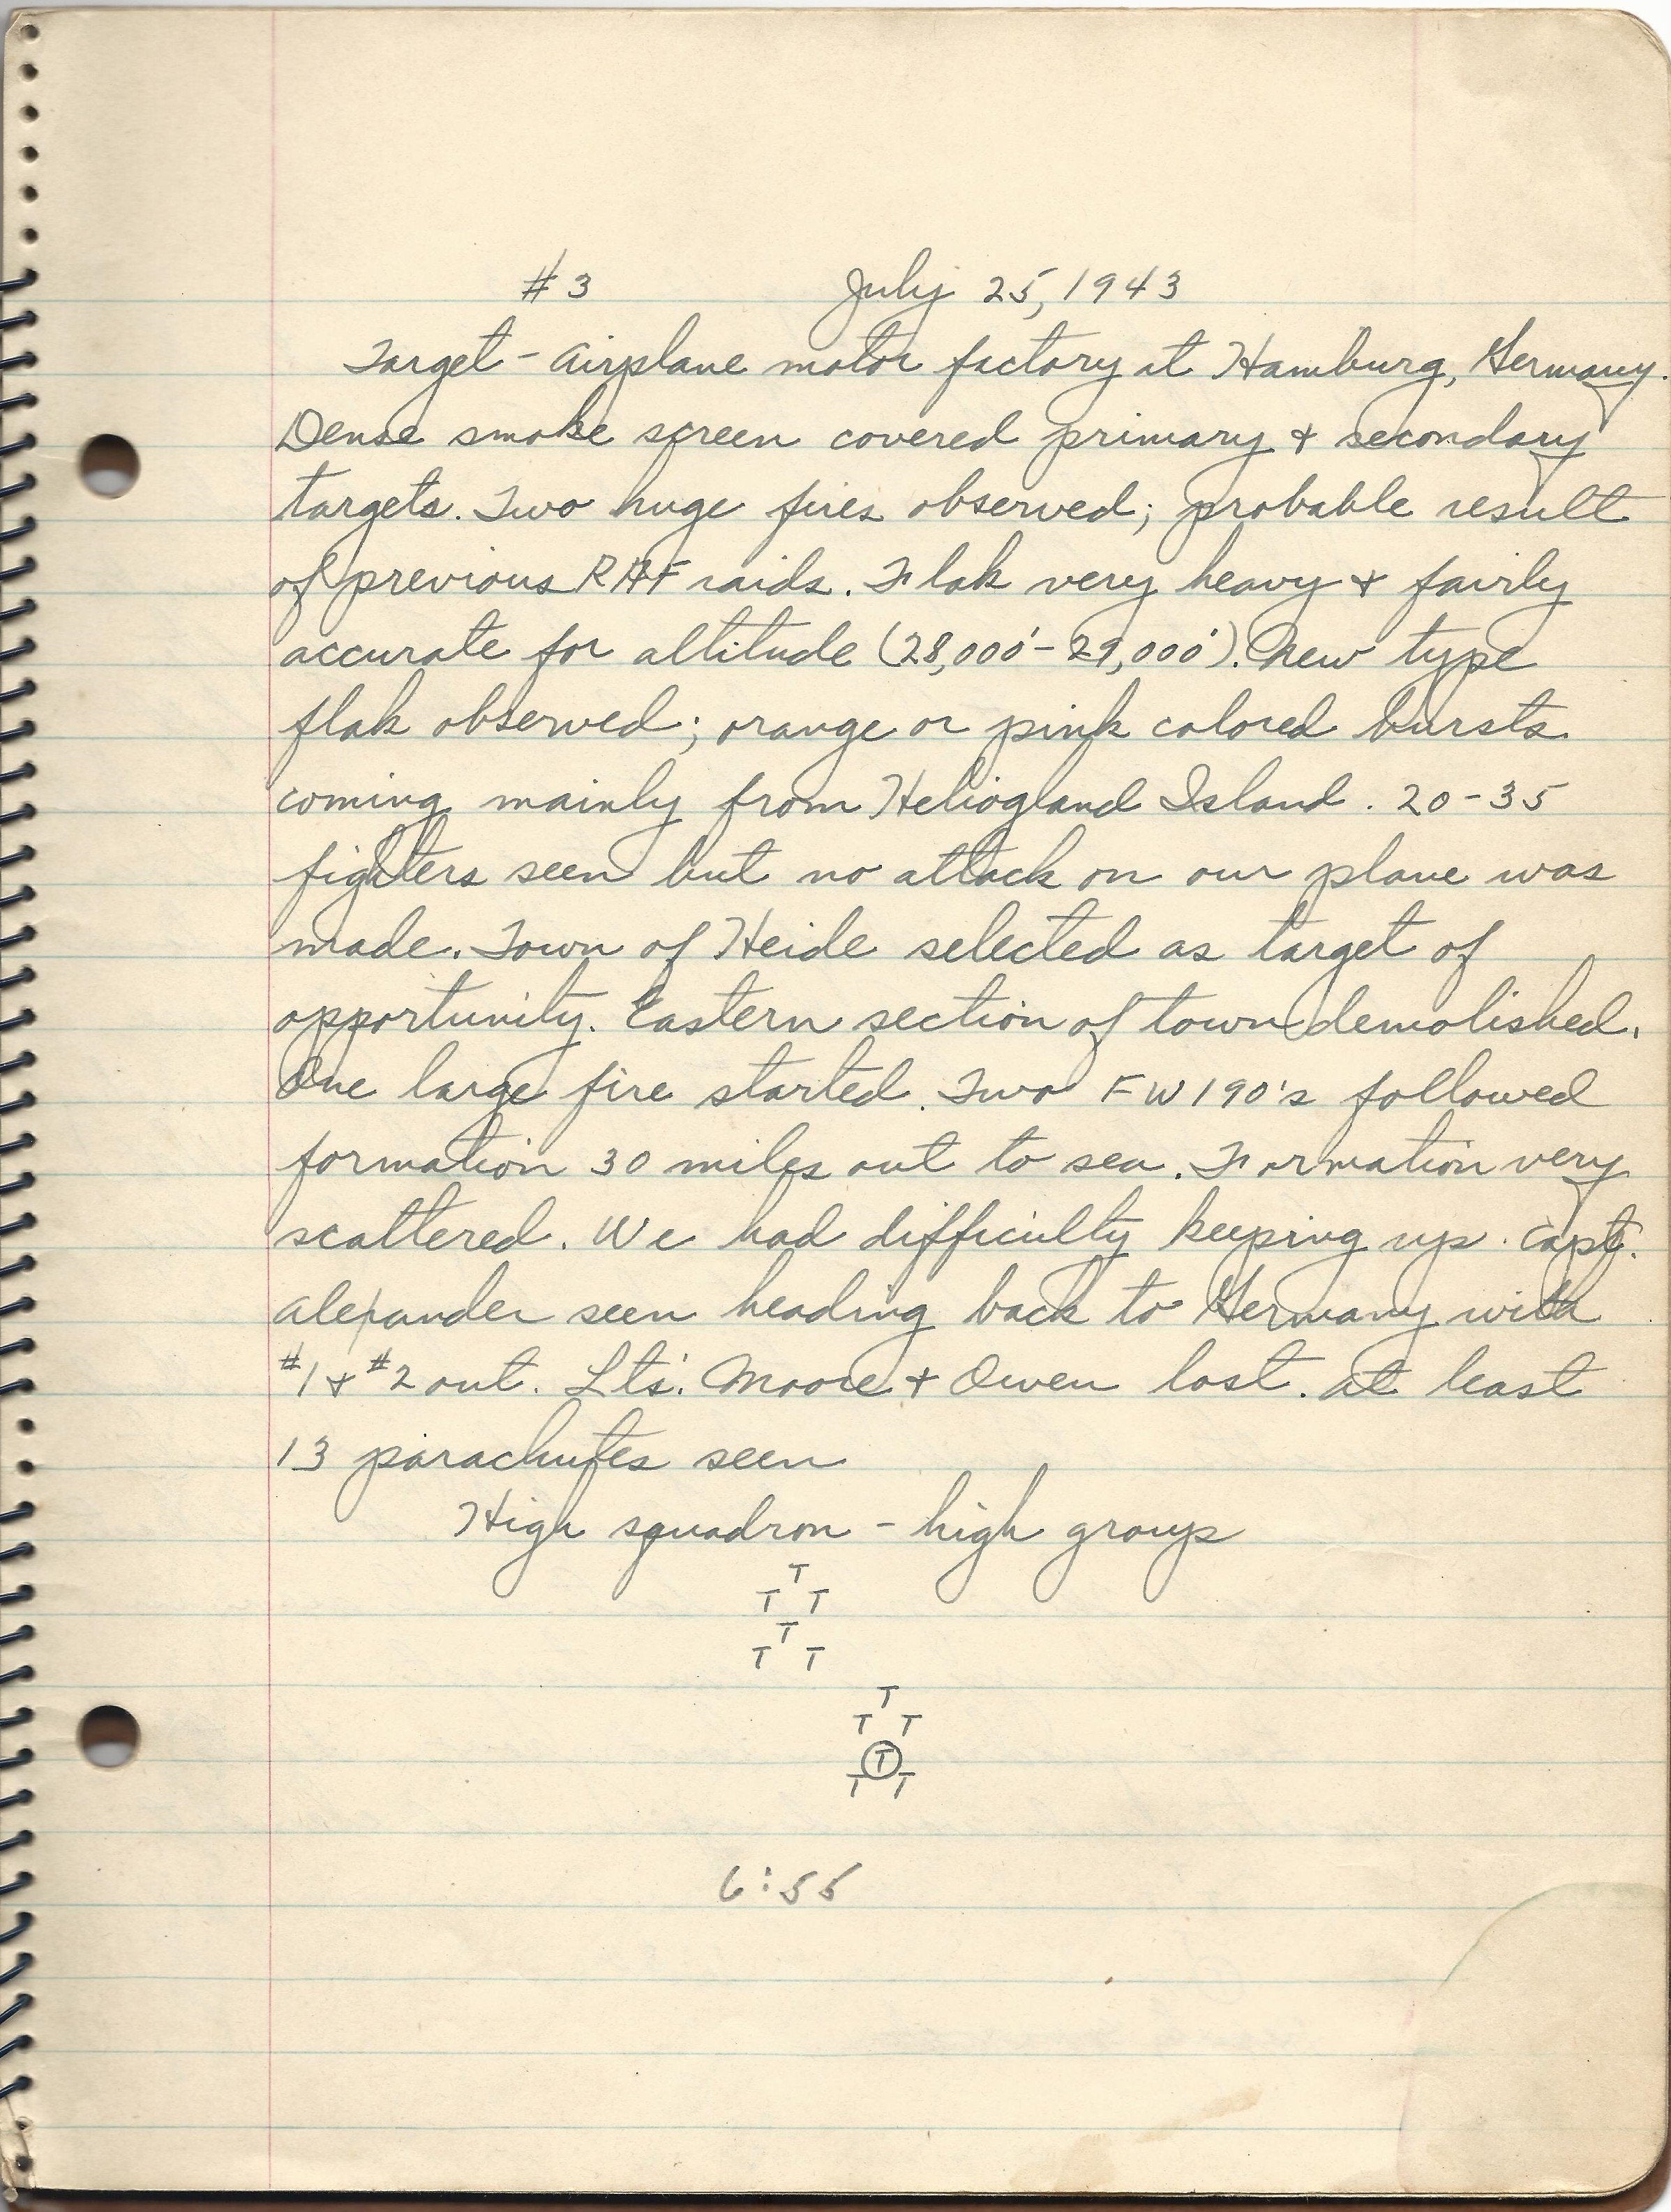 #3 July 25, 1943
Target - Airplane motor factory at Hamburg, Germany.
Dense smoke screen covered primary + secondary
targets. Two huge fires observed; probable result
of previous RAF raids. Flak very heavy + fairly
accurate for altitude (28,000' - 29,000'). New type
flak observed; orange or pink colored bursts
coming mainly from Heliogland Island. 20-35
fighters seen but no attack on our plane was
made. Town of Heide selected as target of
opportunity. Eastern section of town demolished.
One large fire started. Two FW190's followed
formation 30 miles out to sea. Formation very
scattered. We had difficulty keeping up. Capt.
Alexander seen heading back to Germany with
#1 + #2 out. Lts'. Moore + Owen lost. At least
13 parachutes seen
High squadron - high group
T
T T
T
T T
T
T T
T
T T
6:55